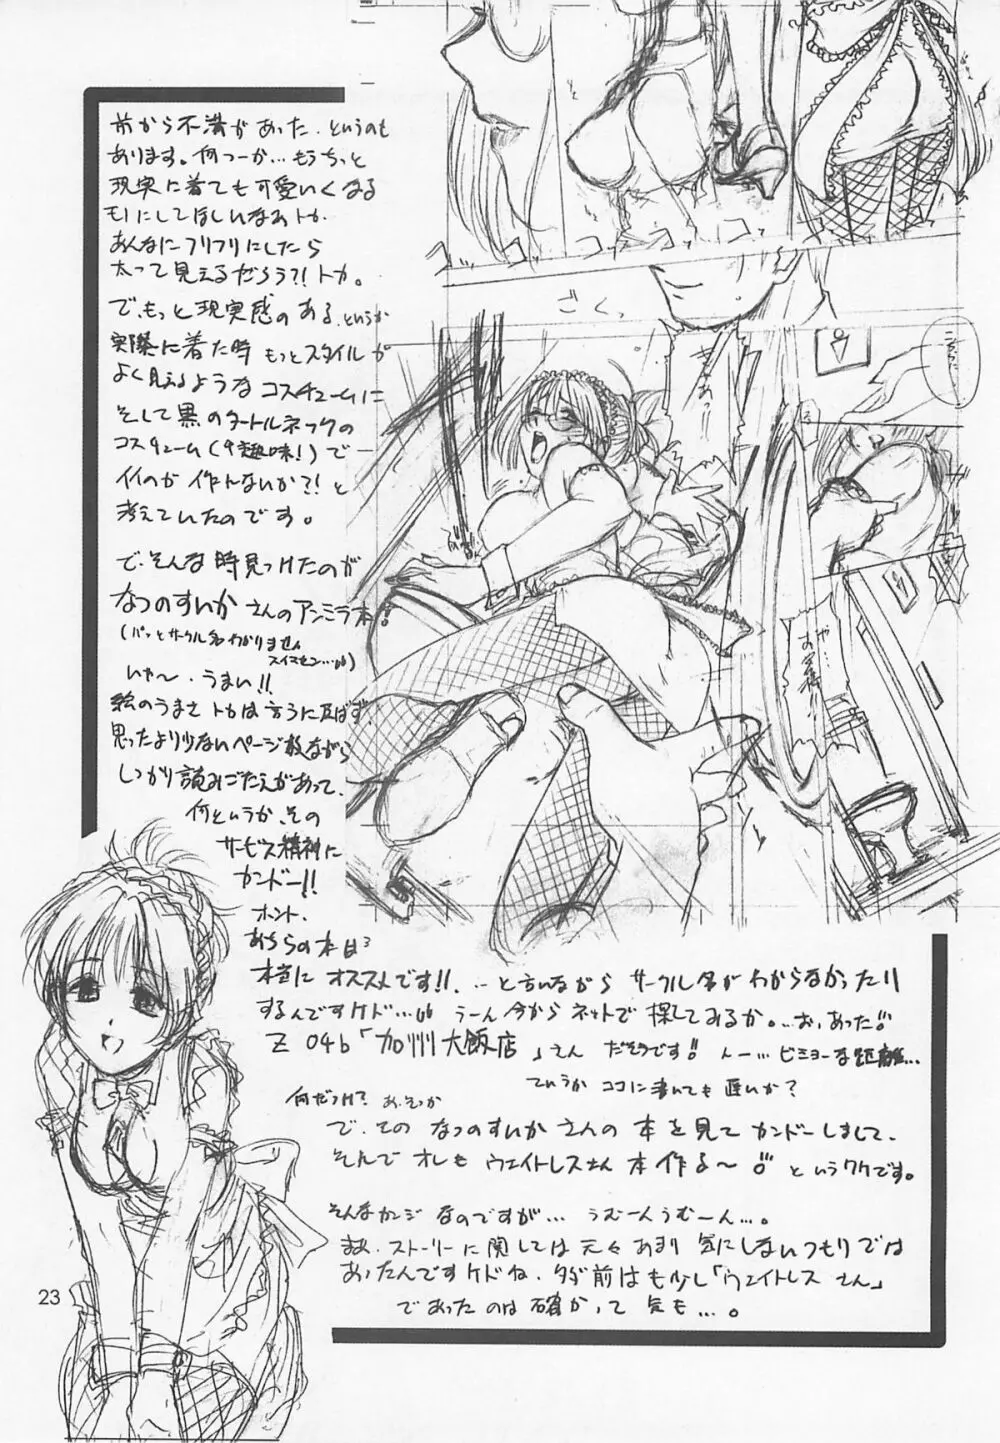 前から不満があった、というのも
あります。何つーか…もうちっと
現実に着ても可愛いくなる
モノにしてほしいなぁトカ、
あんなにフリフリにしたら
太って見えるだろう?!トカ。
で、もっと現実感のある、というか
実際に着た時もっとスタイルが
よく見えるようなコスチュームに
そして黒のタートルネックの
コスチューム(趣味!)で
イイのが作れないか?!と
考えていたのです。
で、そんな時見つけたのが
なつのすいかさんのアンミラ本!!
(パッとサークル名わかりません
スイマセン…)
いや〜、うまい!!
絵のうまさトカは言うに及ばず、
思ったより少ないページ数ながら
しっかり読みごたえがあって、
何というか、その
サービス精神に
カンドー!!
ホント、
あちらの本は
本当にオススメです!!、…と言いながらサークル名がわからなかったり
するんですケド… うーん今からネットで探してみるか。…お、あった!!
Z 04b「加州大飯店」さん だそうです!! んー…ビミョーな距離…
ていうかココに書いても遅いか?
何だっけ? あ、そっか
で、その なつのすいかさんの本を見てカンドーしまして、
そんでオレもウェイトレスさん本作る〜!! というワケです。
そんなカンジなのですが… うむーんうむーん…。
まぁ、ストーリーに関しては元々あまり気にしないつもりでは
あったんですケドね、ただ前はも少し「ウェイトレスさん」
であったのは確かって気も…。
23
ごく
きゃあっ
や…
お客様